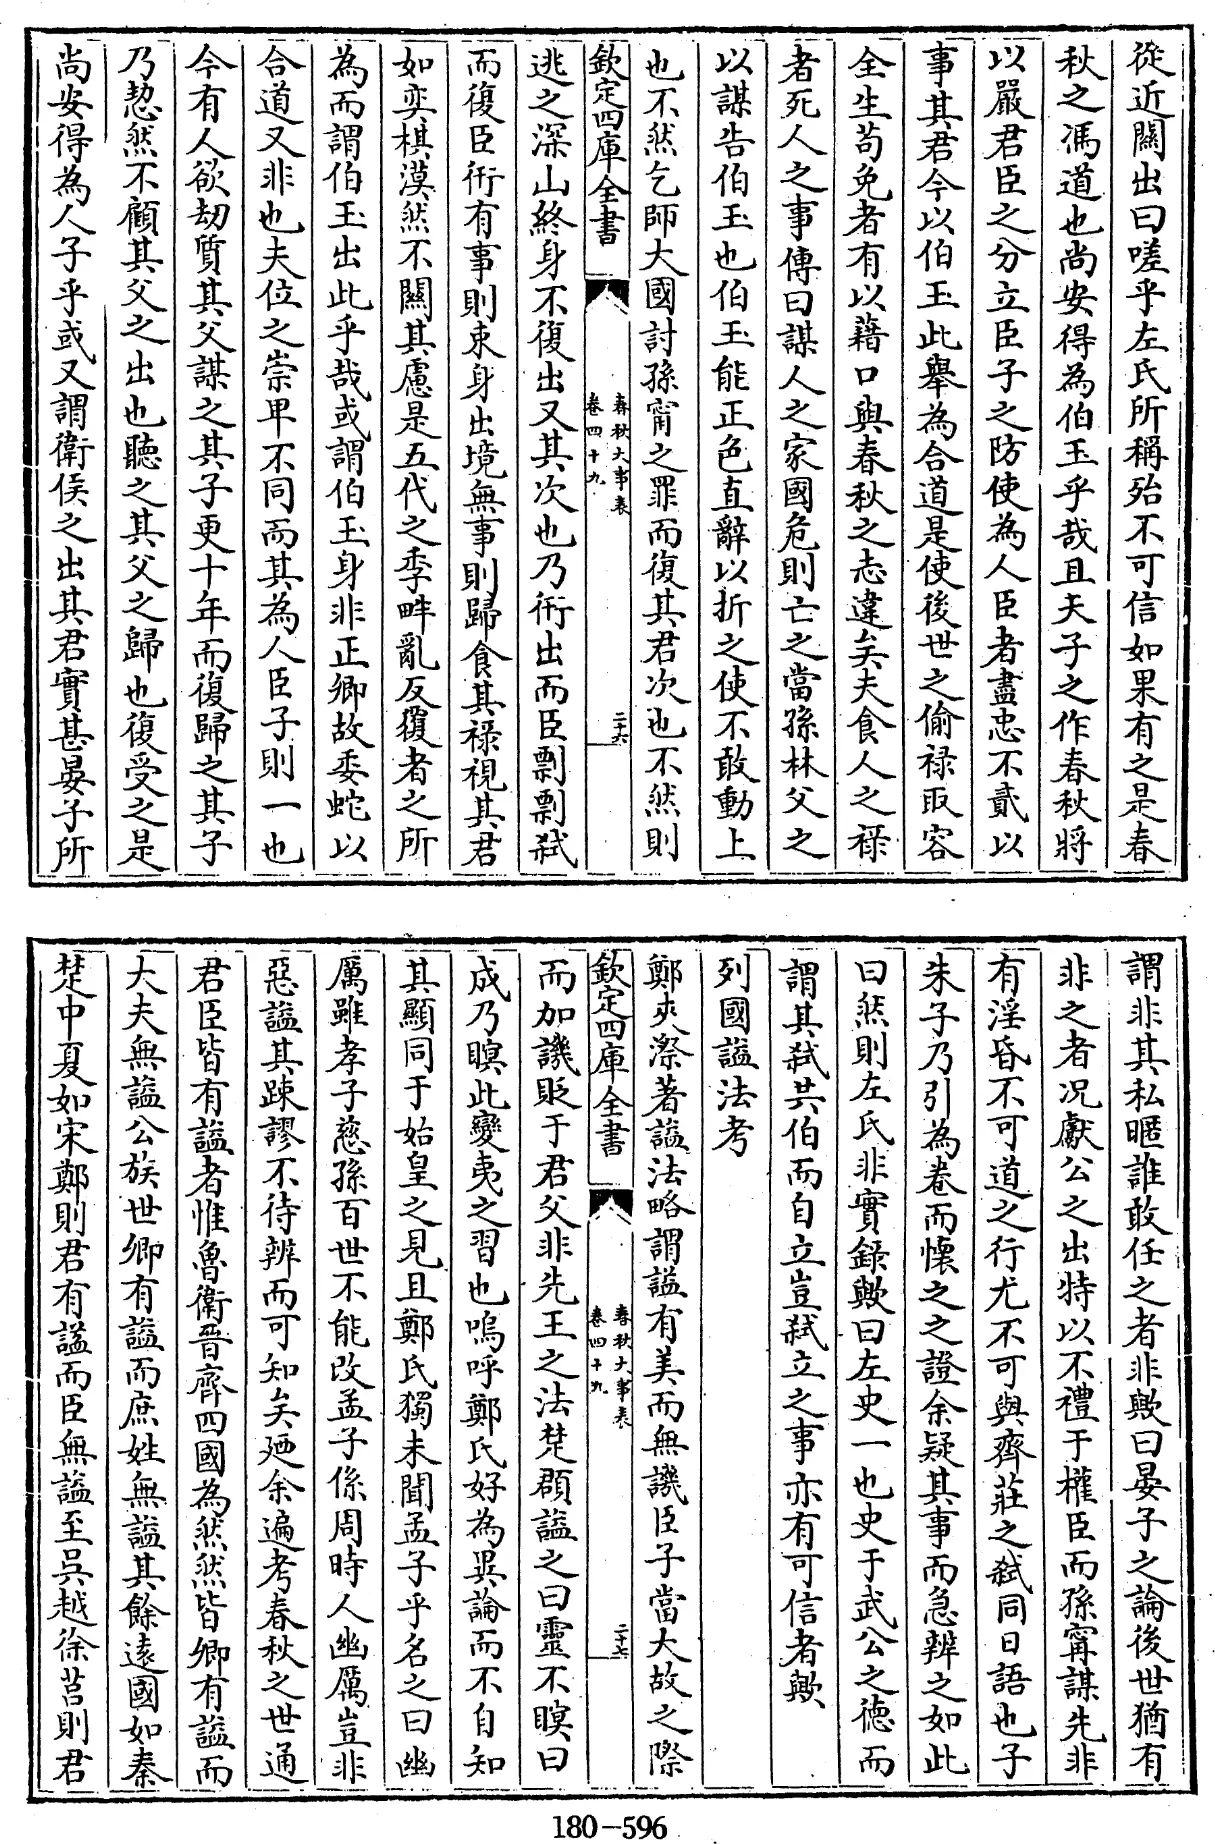 從近關出曰嗟乎左氏所稱殆不可信如果有之是春
秋之馮道也尚安得為伯玉乎哉且夫子之作春秋將
以嚴君臣之分立臣子之防使為人臣者盡忠不貳以
事其君今以伯玉此舉為合道是使後世之偷祿取容
全生苟免者有以藉口與春秋之志違矣夫食人之祿
者死人之事傳曰謀人之家國危則亡之當孫林父之
以謀告伯玉也伯玉能正色直辭以折之使不敢動上
也不然乞師大國討孫甯之罪而復其君次也不然則
欽定四庫全書
春秋大事表
卷四十九
二十六
逃之深山終身不復出又其次也乃衎出而臣剽剽弒
而復臣衎有事則束身出境無事則歸食其祿視其君
如奕棋漠然不關其慮是五代之季畔亂反覆者之所
為而謂伯玉出此乎哉或謂伯玉身非正卿故委蛇以
合道又非也夫位之崇卑不同而其為人臣子則一也
今有人欲劫質其父謀之其子更十年而復歸之其子
乃恝然不顧其父之出也聽之其父之歸也復受之是
尚安得為人子乎或又謂衛侯之出其君實甚晏子所
謂非其私暱誰敢任之者非歟曰晏子之論後世猶有
非之者况獻公之出特以不禮于權臣而孫甯謀先非
有淫昏不可道之行尤不可與齊莊之弒同日語也子
朱子乃引為卷而懷之之證余疑其事而急辨之如此
曰然則左氏非實錄歟曰左史一也史于武公之德而
謂其弒共伯而自立豈弒立之事亦有可信者歟
列國謚法考
鄭夾漈著謚法略謂謚有美而無譏臣子當大故之際
欽定四庫全書
春秋大事表
卷四十九
二十七
而加譏貶于君父非先王之法楚頵謚之曰靈不瞑曰
成乃瞑此變夷之習也嗚呼鄭氏好為異論而不自知
其顯同于始皇之見且鄭氏獨未聞孟子乎名之曰幽
厲雖孝子慈孫百世不能改孟子係周時人幽厲豈非
惡謚其踈謬不待辨而可知矣廼余遍考春秋之世通
君臣皆有謚者惟魯衛晉齊四國為然然皆卿有謚而
大夫無謚公族世卿有謚而庶姓無謚其餘遠國如秦
楚中夏如宋鄭則君有謚而臣無謚至吳越徐莒則君
180-596